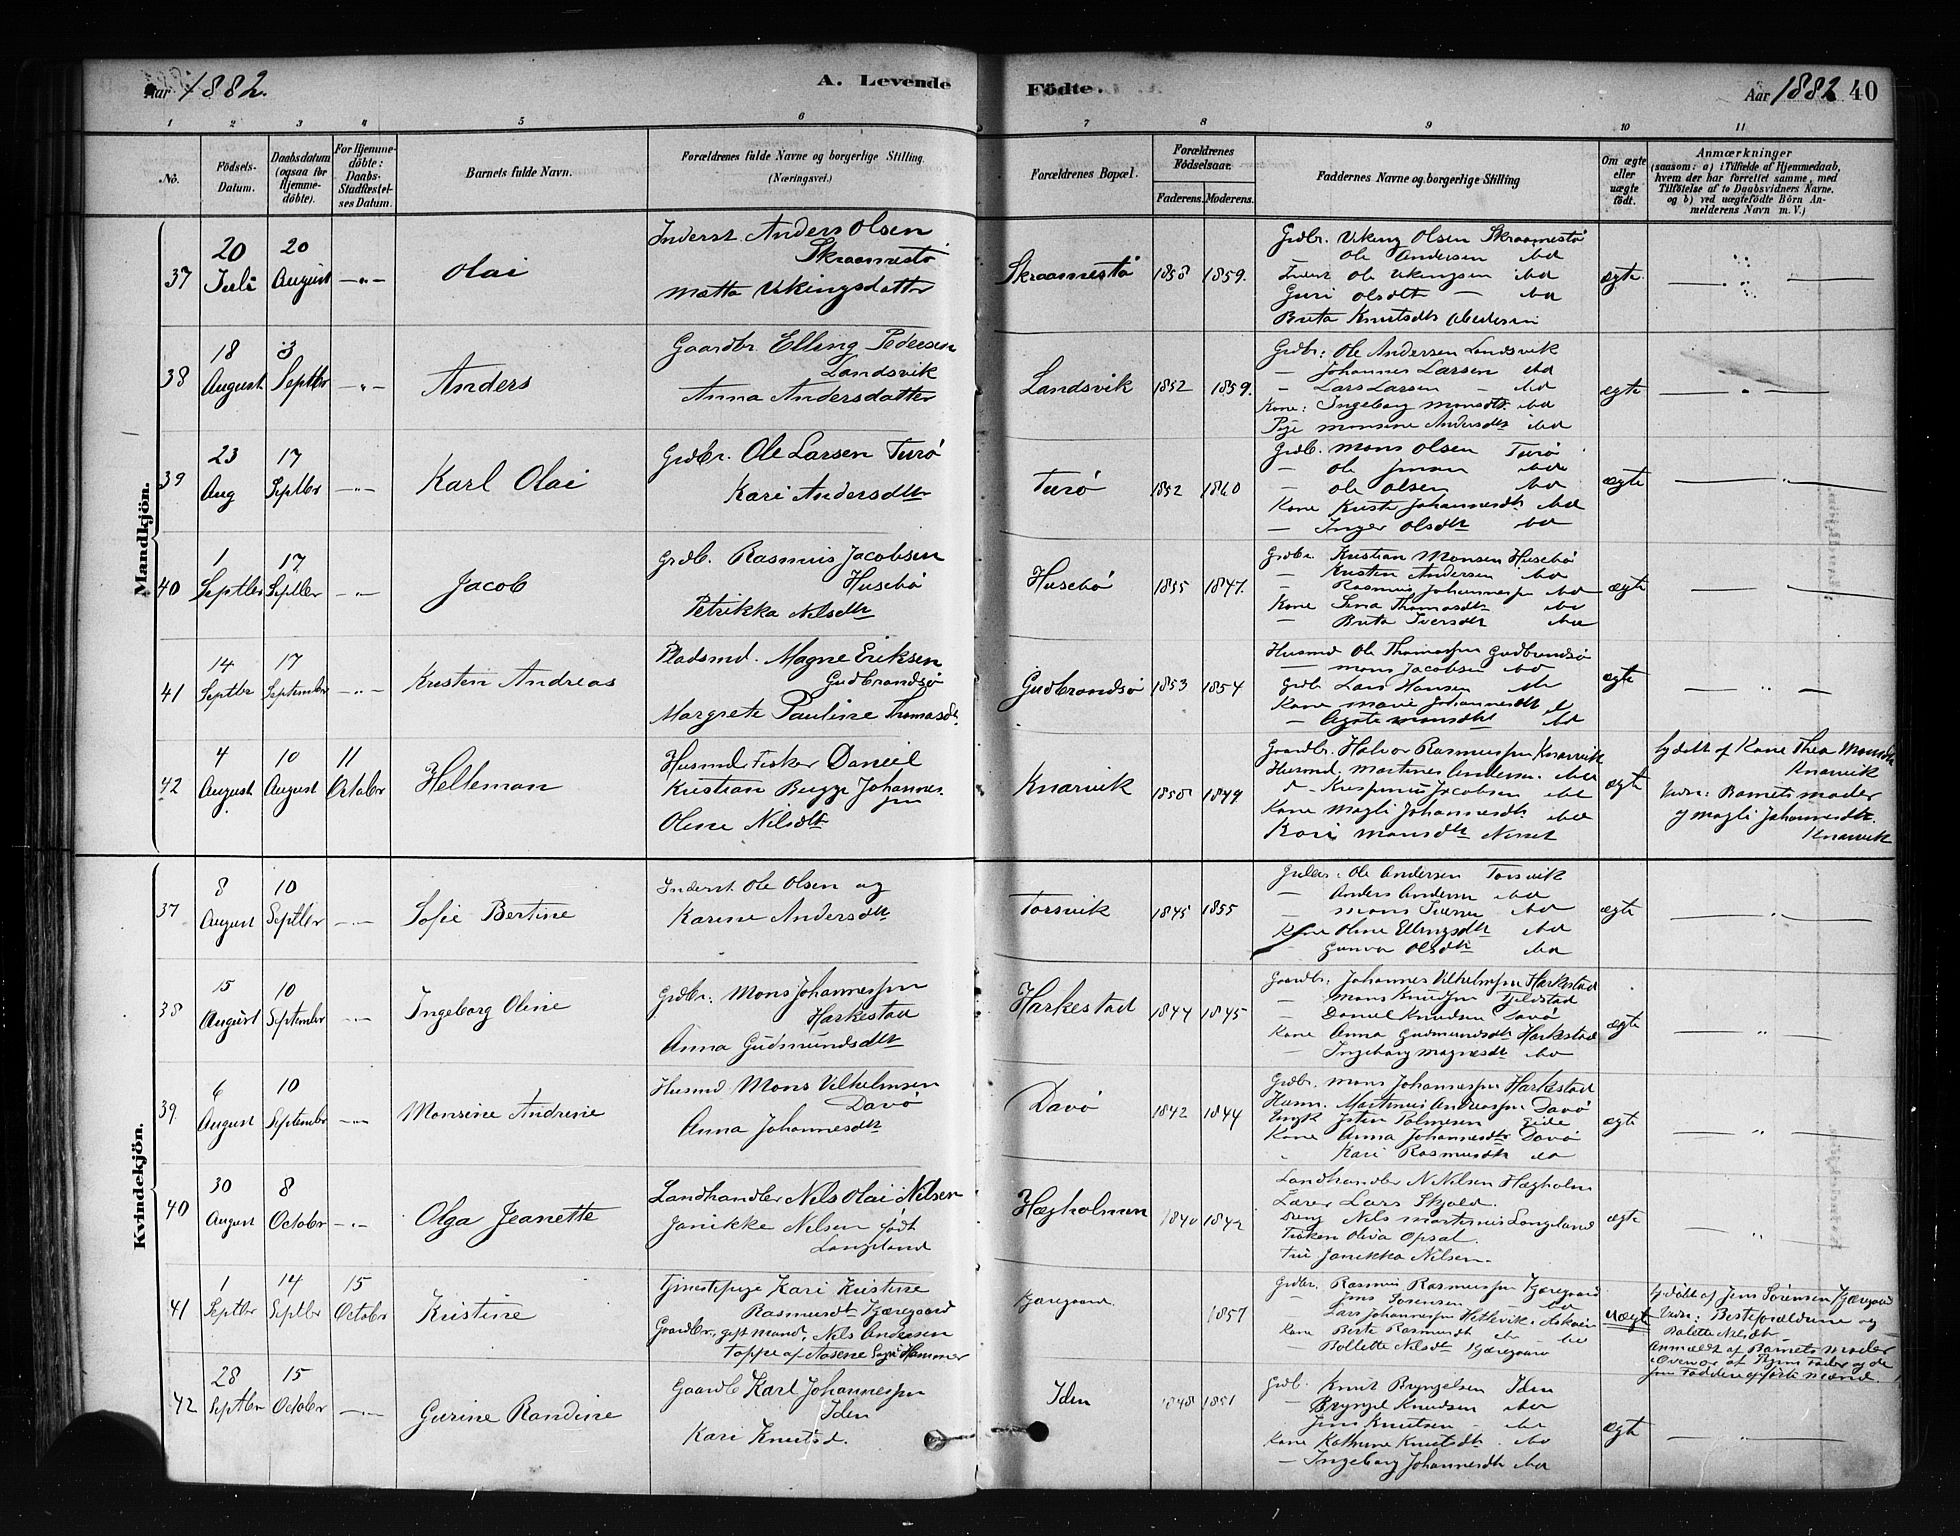 Aar 1882.
A. Levende
Födte.
Aar 1882 40
1 2 3 4 5 6 7 8 9 10 11
No.
Födsels-Datum.
Daabsdatum (ogsaa for Hjemmedöbte).
For Hjemmedöbte: Daabs-Stadfæstelses Datum.
Barnets fulde Navn.
Forældrenes fulde Navne og borgerlige Stilling. (Næringsvei.)
Forældrenes Bopæl.
Forældrenes Födselsaar.
Faderens. Moderens.
Faddernes Navne og borgerlige Stilling
Om ægte eller uægte födt.
Anmærkninger
(saasom: a) i Tilfælde af Hjemmedaab,
hvem der har forrettet samme, med
Tilföielse af to Daabsvidners Navne.
og b) ved uægtefödte Börn Anmelderens Navn m. V.)
Mandkjön.
37
20 Juli
20 August
Olai
Inderst Anders Olsen
Skraamestø
Matta Vikingsdatter
Skraamestø
1858 1859.
Grdbr. Viking Olsen Skraamestø
Ole Andersen ibd
Ole Vikingsen ibd
Guri Olsdtr ibd
Brita Knutsdtr
ægte
38
18 August
3 Septbr
Anders
Gaardbr. Elling Pedersen
Landsvik
Anna Andersdatter
Landsvik
1852 1859.
Grdbr: Ole Andersen Landsvik
— Johannes Larsen ibd
— Lars Larsen — ibd
Kone: Ingeborg Monsdtr ibd
Pige Monsine Andersdtr ibd
ægte
39
23 Aug
17 Septbr
Karl Olai
Grdbr. Ole Larsen Turø
Kari Andersdtr
Turø
1852 1860
Grdb. Mons Olsen Turø
— Ole ibd
— Ole Olsen ibd
Kone Johannesdtr ibd
— Inger Olsdtr ibd
ægte
40
1 Septbr
17 Septbr
Jacob
Grdb. Rasmus Jacobsen
Husebø
Petrikka Nilsdtr
Husebø
1855 1847.
Grdbr. Kristian Monsen Husebø
— Kristen Andersen ibd
— Rasmus Johannessen ibd
Kone Sina Thomasdtr ibd
— Brita Iversdtr ibd
ægte
41
14 Septbr
17 September
Kristen Andreas
Pladsmd. Magne Eriksen
Gudbrandsø
Margrete Pauline Thomasdtr.
Gudbrandsø
1853 1854
Husmd Ole Thomassen Gudbrandsø
— Mons Jacobsen ibd
Grdb Lars Hansen ibd
Kone Marie Johannesdtr
— Agate Monsdtr ibd
ægte
42
4 August
10 August
11 October
Helleman
Husmd. Fisker Daniel
Kristian Bugge Johannessen
Oline Nilsdtr
Knarvik
1850 1849
Gaardbr. Halvor Rasmussen Knarvik
Husmd. Martines Andersn. ibd
Jacobsen ibd
Kone Magli Johannesdtr ibd
Kari Monsdtr
ægte
hjdøbt af Kone Thea Monsdtr
Knarvik
Vidn: Barnets moder
og Magli Johannesdtr.
Knarvik
Kvindekjön.
37
8 August
10 Septbr
Sofie Bertine
Inderst Ole Olsen og
Karine Andersdtr
Torsvik
1845 1855
Ole Andersen Torsvik
— Anders Andersen ibd
— Mons ibd
Kone Oline Ellingsdtr ibd
Gunvor Olsdtr ibd
ægte
38
15 August
10 September
Ingeborg Oline
Grdbr: Mons Johannessen
Harkestad
Anna Gudmundsdtr
Harkestad
1844 1845
Gaardbr. Johannes Vilhelmsen Harkestad
— Mons Knudsen Fjeldstad
— Daniel Knudsen Davø
Kone Anna Gudmundsdtr Harkestad
— Ingeborg Magnesdtr ibd
ægte
39
6 August
10 September
Monsine Andrine
Husmd Mons Vilhelmsen
Davø
Anna Johannesdtr
Davø
1842 1844
Grdbr. Mons Johannessen Harkestad
Husm. Martinus Andreassen Davø
Kone Anna Johannesdtr Davø
Kari Rasmusdtr ibd
ægte
40
30 August
8 October
Olga Jeanette
Landhandler Nils Olai Nilsen
Janikke Nilsen født
Langeland
Hægholmen
1840 1842
Landhandler N. Nilsen Hægholm
Lærer Lars Skjold.
Nils Martinus Langeland
Frøken Oliva Opsal.
Janikka Nilsen.
ægte
41
1 Septbr
14 Septbr
15 October
Kristine
Tjenestepige Kari Kristine
Rasmusdtr Kjæregaard
Gaardbr. gift mand, Nils Andersen
Toppe af Aasene Sogn Hammer
Kjæregaard.
1857
Grdbr. Rasmus Rasmussen Kjæregaard
— Jens Sørensen — ibd
Lars Johannessen Hetlevik Askøen
Kone Berte Rasmusdtr — ibd
— Bollette Nilsdtr Kjæregaard
uægte
hjdøbt af Jens Sørensen Kjæregaard
Vidn: Besteforældrene og
Bolette Nilsdtr
Anmeldt af Barnets moder
42
28 Septbr
15 October
Gurine Randine
Gaardb Karl Johannessen
Iden
Kari Knutsd.
Iden
1848 1851
Grdb. Knut Brynjelsen Iden
— Brynjel Knudsen ibd
Jens Knutsen — ibd
Kone Kathrine Knutsdtr. ibd
— Ingeborg Johannesdtr ibd
ægte